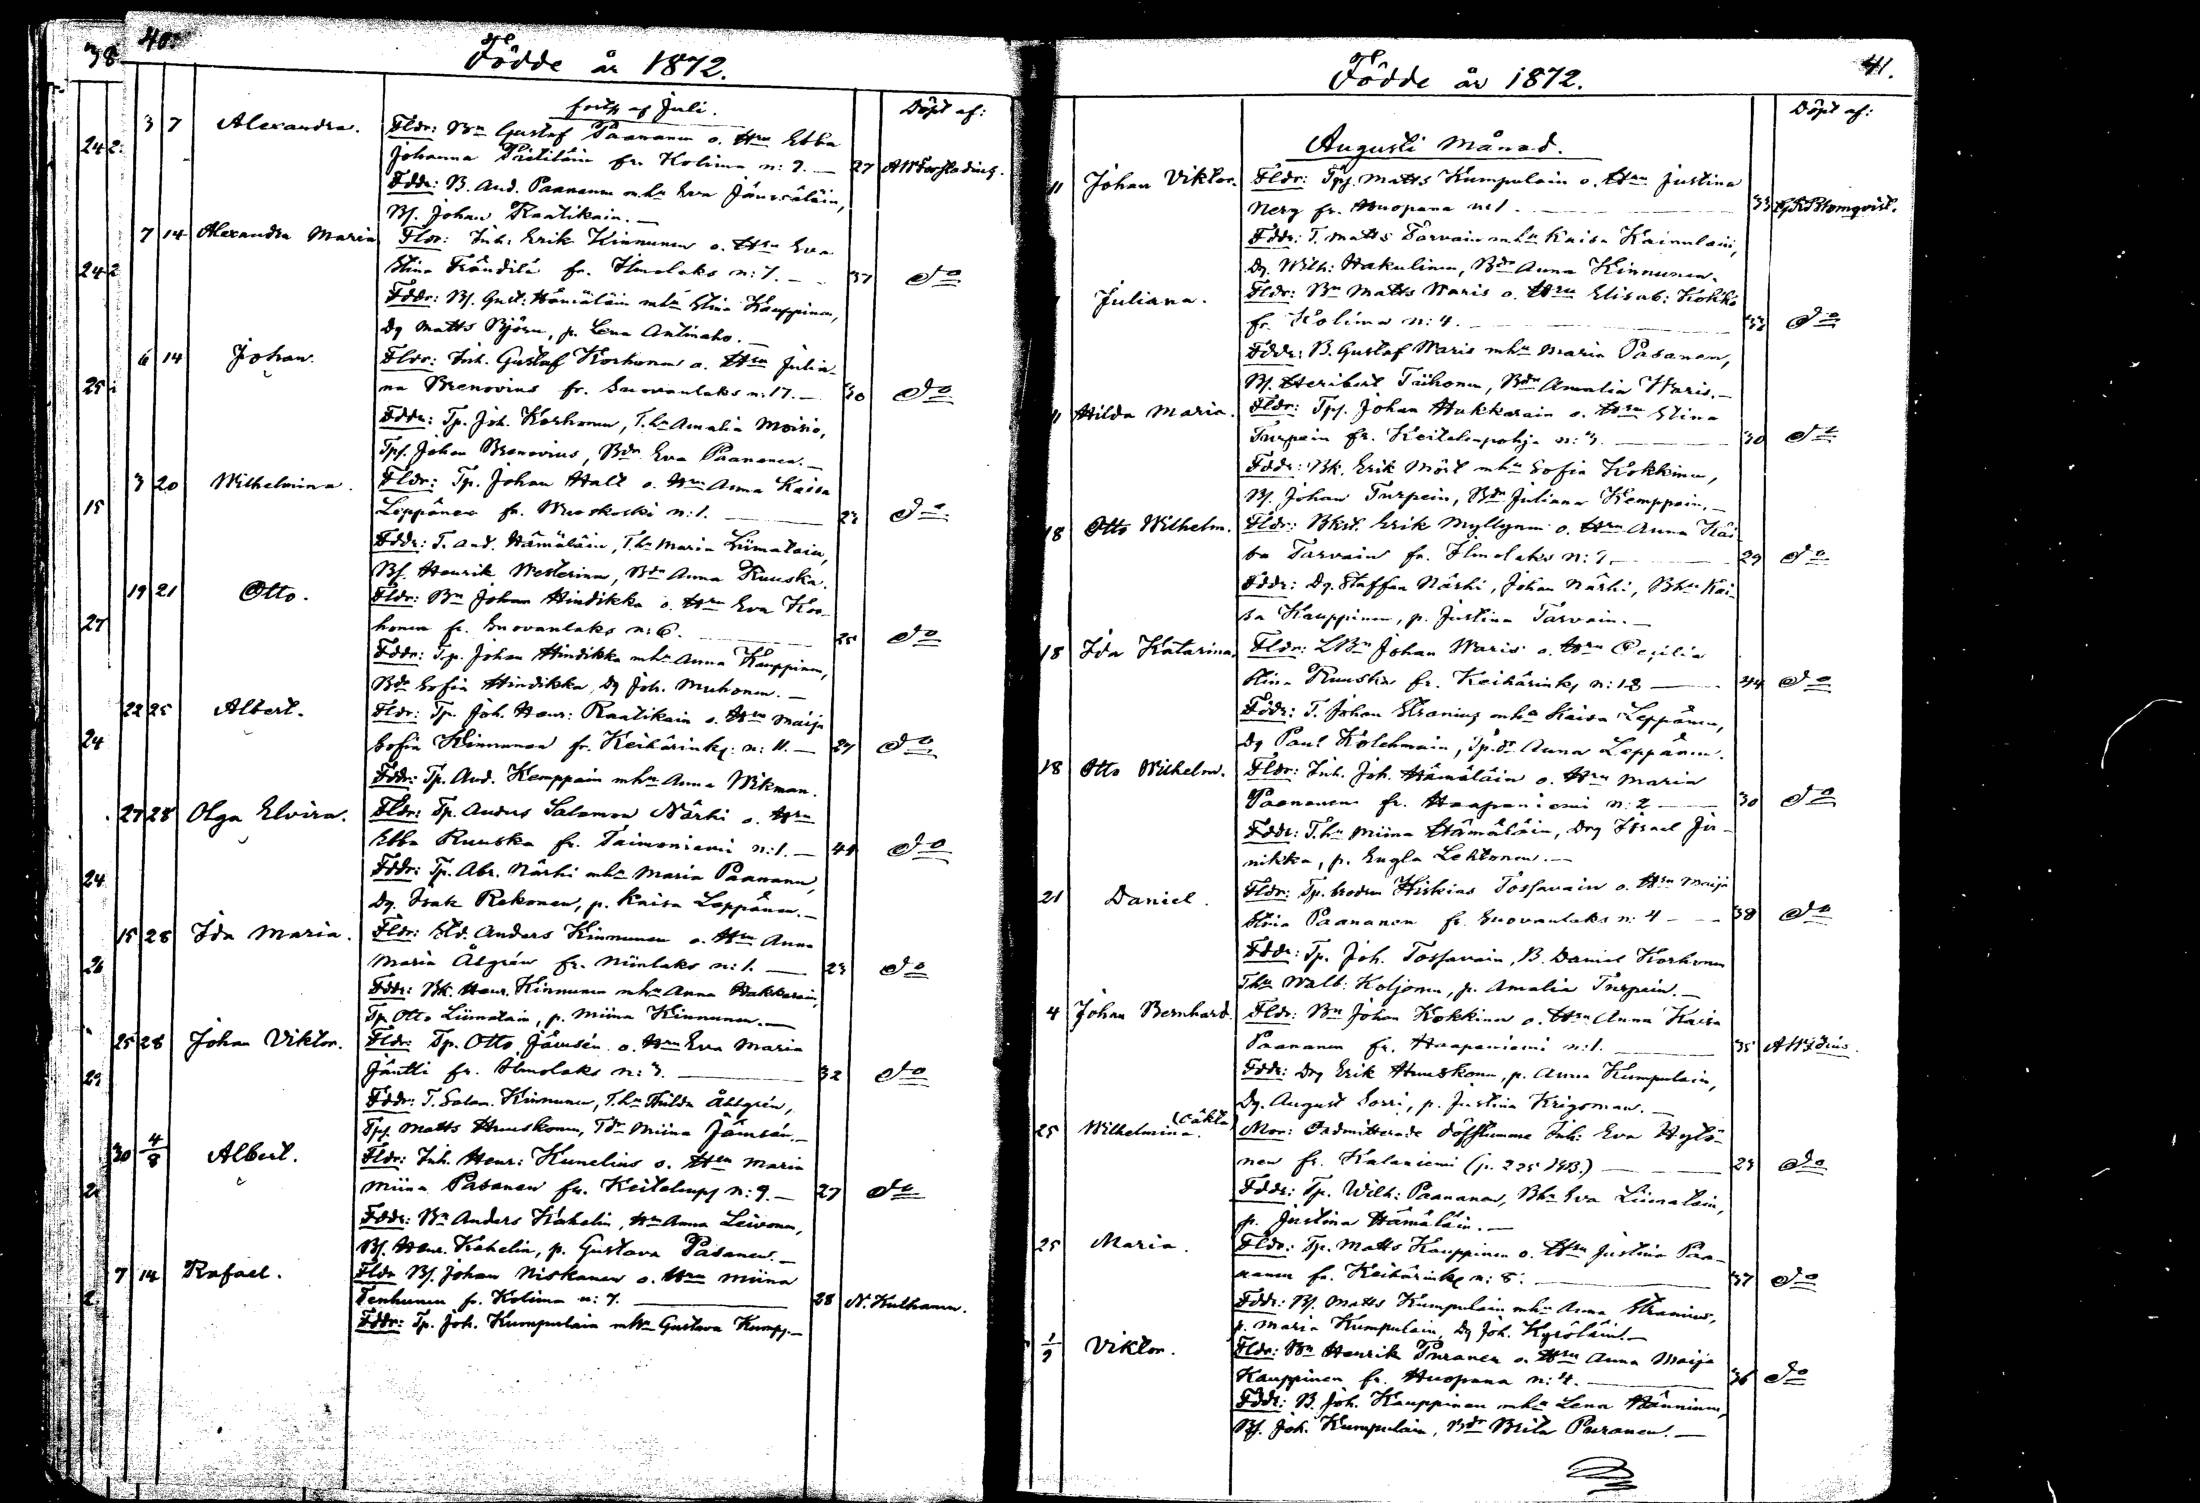 38
40.
Födde år 1872.
forts. af Juli.
Döpt af:
3 7 Alexandra. Fldr: Bn Gustaf Paananen o. Hru Ebba
Johanna Pietiläin fr. Kolima n: 7. — 27
Fddr: B. And. Paananen m.hu Eva Jämsäläin,
Bs. Johan Raatikain. —
7 14 Alexandra Maria Fldr: Inh. Erik Kinnunen o. Hru Eva
Stina Frändilä fr. Ilmolaks n: 7. — 37 do
Fddr: Bs. Gust. Hämäläin mhu Stina Kauppinen,
Dg Matts Björn, p. Lena Antinaho. —
6 14 Johan. Fldr: Inh. Gustaf Korhonen o. Hru Julia-
na Brenovius fr. Suovanlaks n: 17. — 30 do
Fddr: Tp. Joh. Korhonen, T.hu Amalia Moisio,
Tps. Johan Brenovius, Bdr Eva Paananen. —
3 20 Wilhelmina. Fldr: Tp. Johan Halt o. Hru Anna Kaisa
Leppänen fr. Wuoskoski n: 1. — 23 do
Fddr: T. And. Hämäläin, T.hu Maria Liimatain,
Bs. Henrik Westerinen, Bdr Anna Ruuska.
19 21 Otto. Fldr: Bn Johan Hindikka o. Hru Eva Kor-
honen fr. Suovanlaks n: 6. — 25 do
Fddr: Tp. Johan Hindikka mhu Anna Kauppinen,
Bdr Sofia Hindikka, Dg Joh. Muhonen. —
22 25 Albert. Fldr: Tp. Joh. Henr: Raatikain o. Hru Maija
Sofia Kinnunen fr. Keihärinkj: n: 11. — 27 do
Fddr: Tp. And. Kemppain mhu Anna Wikman.
27 28 Olga Elvira. Fldr: Tp. Anders Salomon Närhi o. Hru
Ebba Ruuska fr. Taimoniemi n: 1. — 44 do
Fddr: Tp. Abr. Närhi mhu Maria Paananen,
Dg. Isak Rekonen, p. Kaisa Leppänen. —
15 28 Ida Maria. Fldr: Anders Kinnunen o. Hru Anna
Maria Ålgrén fr. Niinlaks n: 1. — 23 do
Fddr: Bk. Henr. Kinnunen mhu Anna Hakkarain,
Tp. Otto Liimatain, p. Miina Kinnunen. —
25 28 Johan Viktor. Fldr: Tp. Otto Jämsén o. Hru Eva Maria
Jäntti fr. Ilmolaks n: 3. — 32 do
Fddr: T. Salom. Kinnunen, T.hu Hilda Åhlgrén,
Tps Matts Huuskonen, Tdr Miina Jämsén. —
30 4/8 Albert. Fldr: Inh. Henr: Kunelius o. Hru Maria
Miina Pasanen fr. Keitelepj n: 9. — 27 do
Fddr: Bn Anders Kahelin, Hru Anna Leivonen,
Bs. Henr. Kahelin, p. Gustava Pasanen. —
7 14 Rafael. Fldr Bs. Johan Niskanen o. Hru Miina
Tenhunen fr. Kolima n: 7. — 28 N. Kulhanen.
Fddr: Tp. Joh. Kumpulain mhu Gustava Kump. —
41.
Födde år 1872.
Döpt af:
Augusti Månad.
11 Johan Viktor. Fldr: Tps. Matts Kumpulain o. Hru Justina
Nerg fr. Huopana n: 1. — 33 Blomqvist.
Fddr: T. Matts Tarvain mhu Kaisa Kainulain,
Dg. Wilh: Hakulinen, Bdr Anna Kinnunen.
Juliana. Fldr: Bn Matts Waris o. Hru Elisab: Kokko
fr. Kolima n: 4. — 33 do
Fddr: B. Gustaf Waris mhu Maria Pasanen,
Bs. Heribert Tiihonen, Bdr Amalia Waris. —
11 Hilda Maria. Fldr: Tps. Johan Hakkarain o. Hru Stina
Turpein fr. Keitelepohja n: 3. — 30 do
Fddr: Bk. Erik Mört mhu Sofia Kokkinen,
Bs. Johan Turpein, Bdr Juliana Kemppain. —
18 Otto Wilhelm. Fldr: Bkst. Erik Myllynen o. Hru Anna Kai-
sa Tarvain fr. Ilmolaks n: 1. — 29 do
Fddr: Dg. Staffan Närhi, Johan Närhi, Bhu Kai-
sa Kauppinen, p. Justina Tarvain. —
18 Ida Katarina. Fldr: LBn Johan Waris o. Hru Cecilia
Stina Ruuska fr. Keihärinkj n: 18 — 44 do
Fddr: T. Johan Stranius mhu Kaisa Leppänen,
Dg Paul Kolehmain, Tp.dr Anna Leppänen.
18 Otto Wilhelm. Fldr: Inh. Joh. Hämäläin o. Hru Maria
Paananen fr. Haapaniemi n: 2 — 30 do
Fddr: T.hu Miina Hämäläin, Drg Israel Jin-
nikka, p. Engla Lehtonen. —
21 Daniel. Fldr: Tp. brodren Hiskias Tossavain o. Hru Maija
Stina Paananen fr. Suovanlaks n: 4 — 38 do
Fddr: Tp. Joh. Tossavain, B. Daniel Korhonen
Thu Walb: Koljonen, p. Amalia Turpein. —
4 Johan Bernhard. Fldr: Bn Johan Kokkinen o. Hru Anna Kaisa
Paananen fr. Haapaniemi n: 1. — 35
Fddr: Drg Erik Huuskonen, p. Anna Kumpulain,
Dg. August Sorri, p. Justina Krigsman. —
25 Wilhelmina. (oäkta) Mor: Inh: Eva Hytö-
nen fr. Kalaniemi (p. 225 KB.) — 23 do
Fddr: Tp. Wilh: Paananen, Bhu Eva Liimatain,
p. Justina Hämäläin. —
25 Maria. Fldr: Tp. Matts Kauppinen o. Hru Justina Paa-
nanen fr. Keihärinkj n: 8. — 37 do
Fddr: Bs. Matts Kumpulain mhu Anna Stranius,
p. Maria Kumpulain, Dg Joh. Kyröläin. —
1/9 Viktor. Fldr: Bn Henrik Puranen o. Hru Anna Maija
Kauppinen fr. Huopana n: 4. — 36 do
Fddr: B. Joh. Kauppinen mhu Lena Hänninen,
Bs. Joh. Kumpulain, Bdr Brita Puranen. —